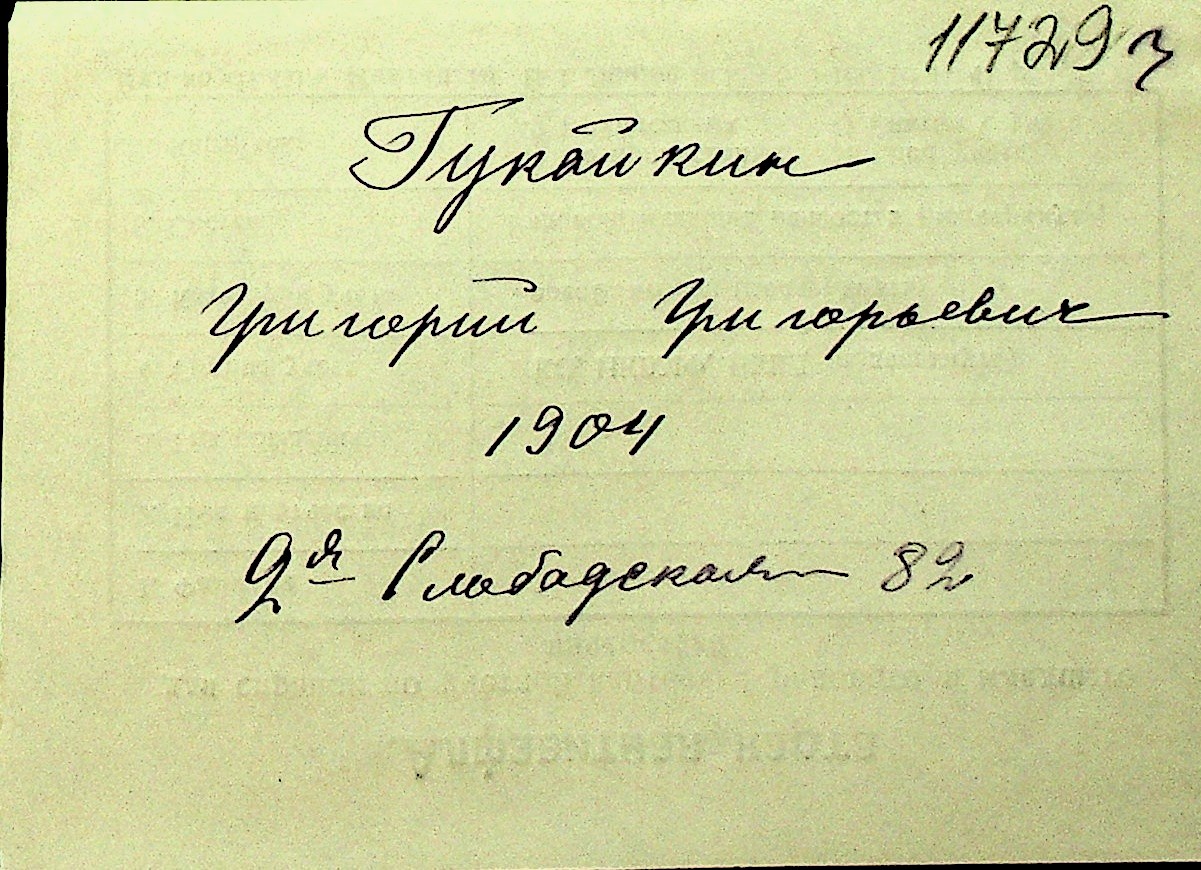 11729 з
Гукайкин
Григорий Григорьевич
1904
2я Слабадская 82